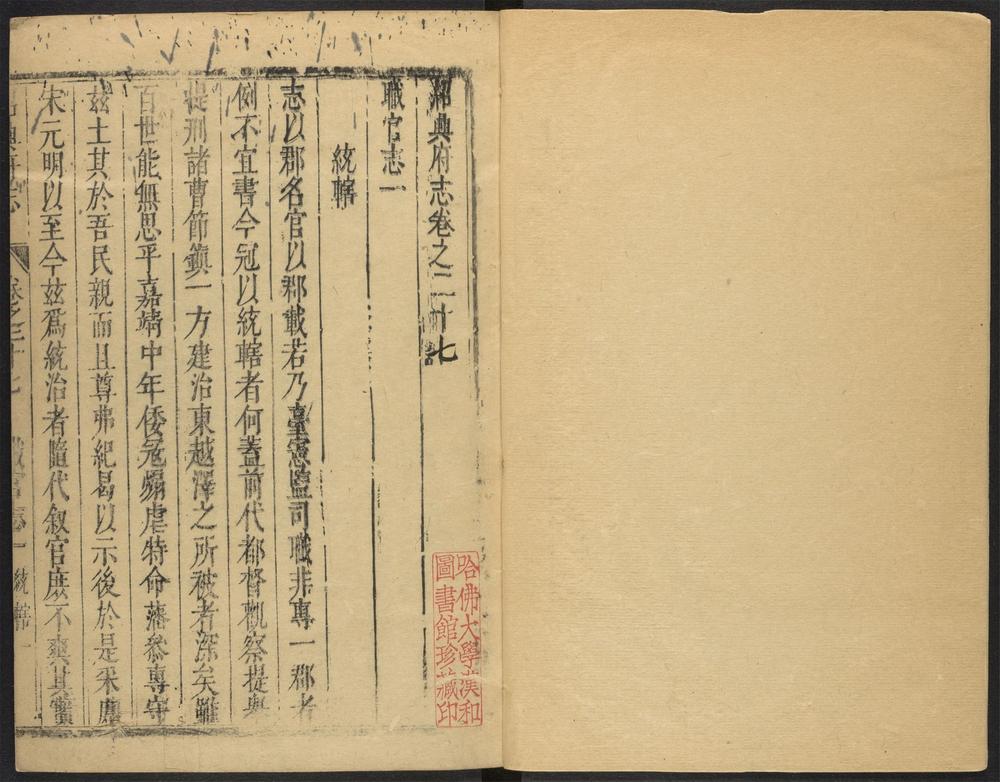 紹興府志卷之二十七
職官志一
統轄
志以郡名官以郡載若乃臺憲監司職非專一郡者
例不宜書今冠以統轄者何蓋前代都督觀察提舉
提刑諸曹節鎮一方建治東越澤之所被者深矣雖
百世能無思乎嘉靖中年倭冦煽虐特命藩叅專守
兹土其於吾民親而且尊弗紀曷以示後於是采摭
宋元明以至今兹爲統治者隨代叙官庶不爽其實
卷之二十七
職官志一 統轄 一
哈佛大學漢和
圖書館珍藏印